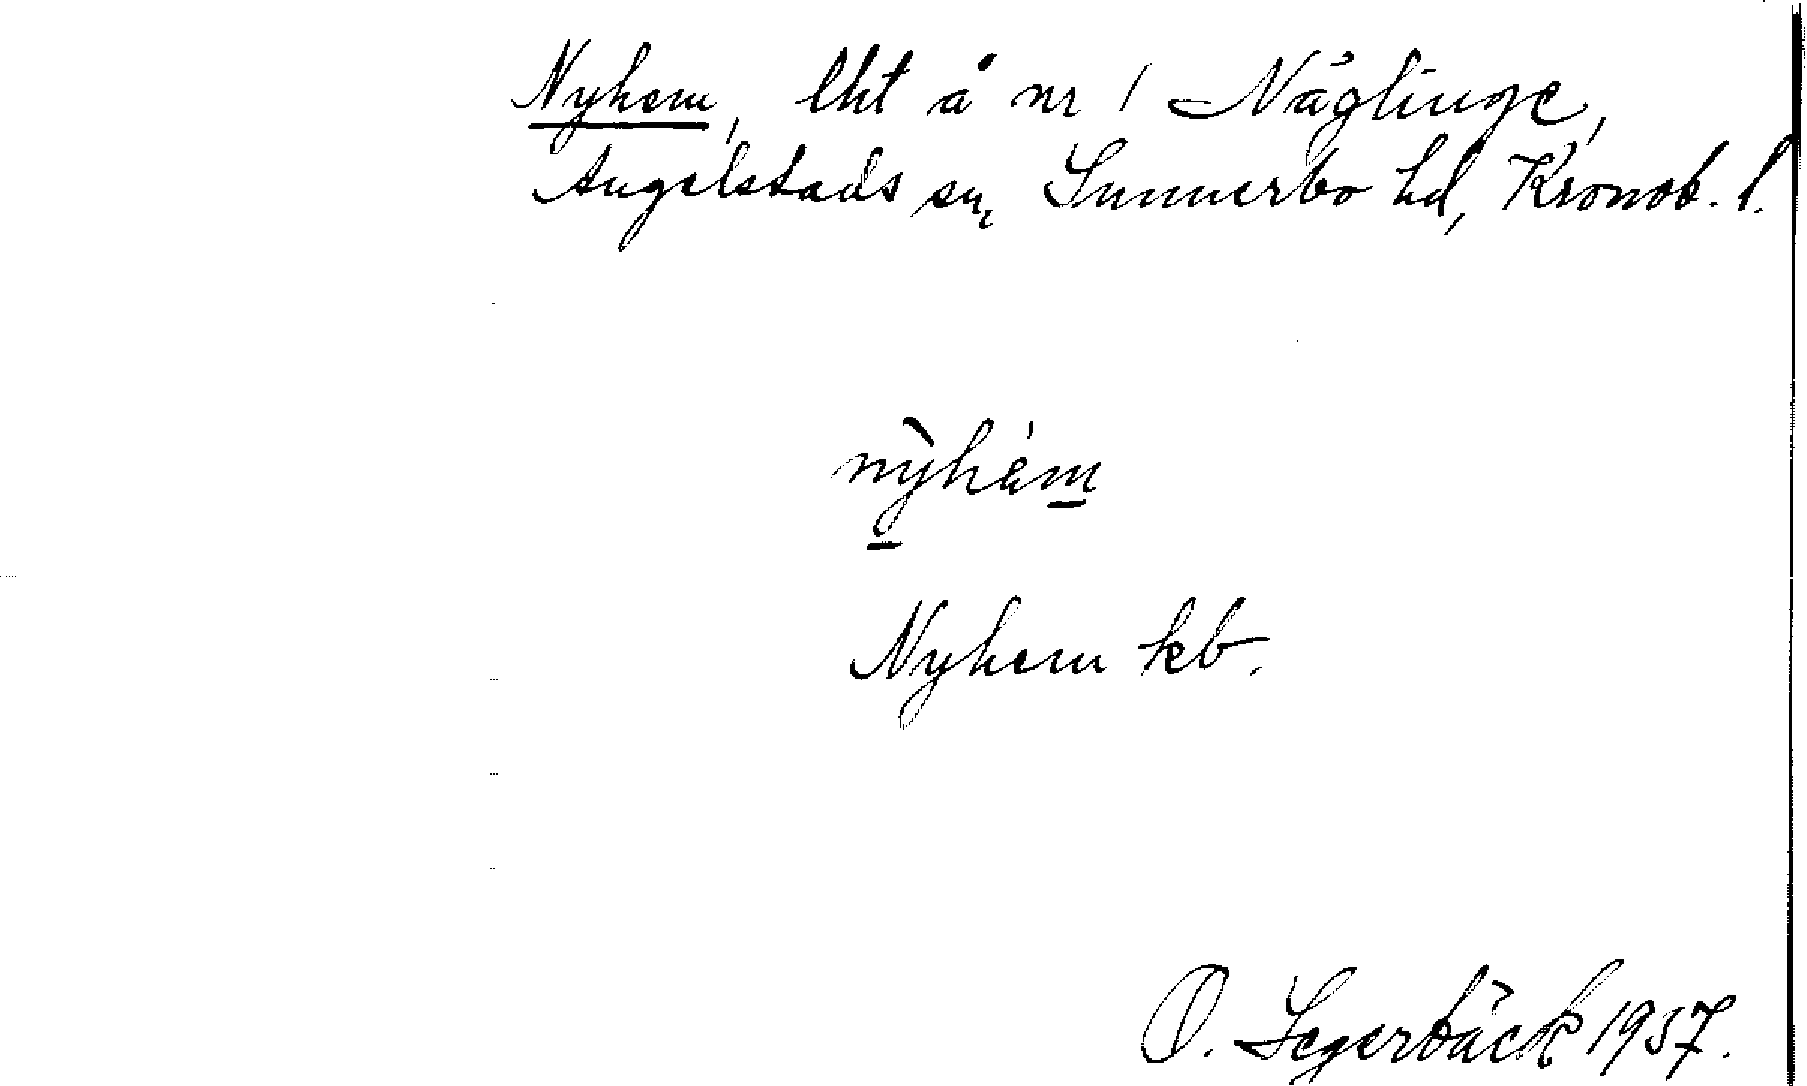 Nyhem, lht å nr 1 Näglinge,
Angelstads sn, Sunnerbo hd, Kronob. l.
nỳhém
Nyhem kb.
O. Segerbäck 1957.